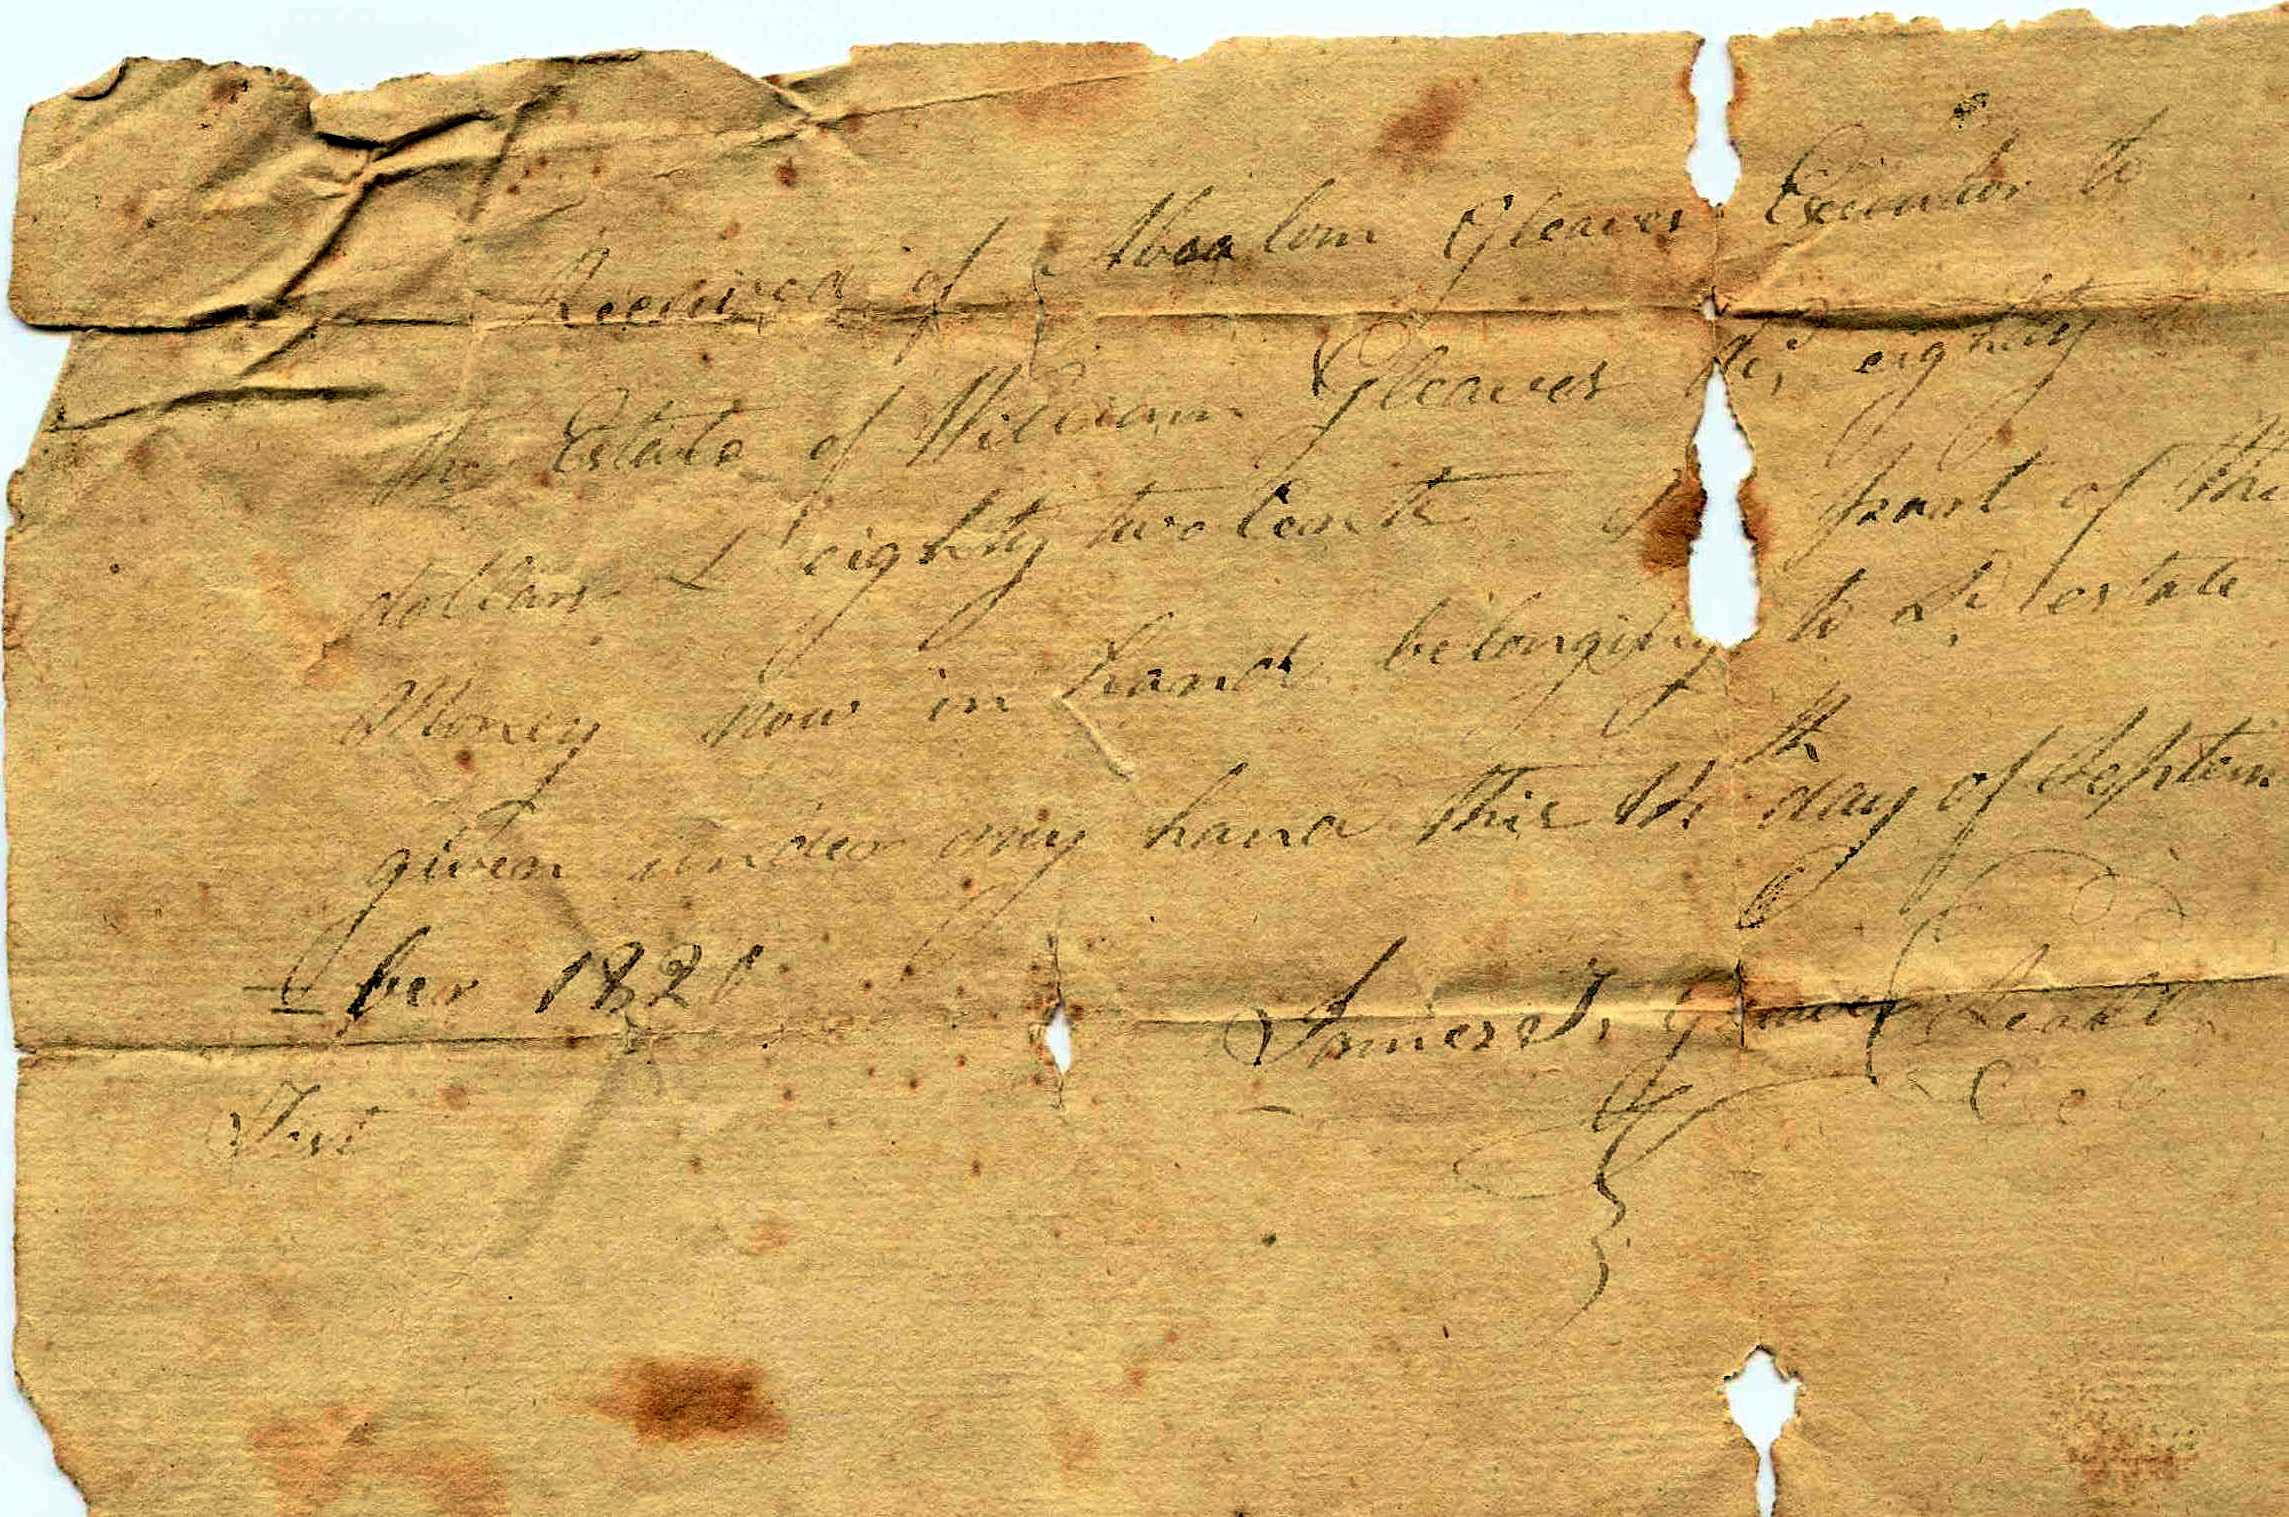 Received of Absalom Gleaves Executor to
the Estate of William Gleaves Decd eighty
dollars & eighty two Cents part of the
Money now in hand belonging to sd estate
given under my hand this day of Septem
ber 1821
James T. Gleaves Seal
Test